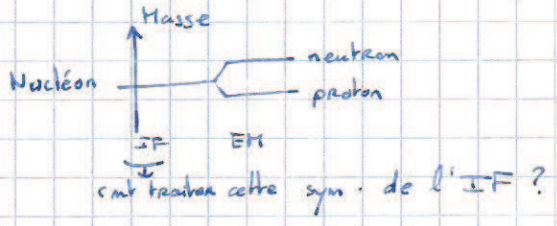 Masse
neutron
Nucléon
proton
IF EM
cmt traiter cette sym. de l'IF ?